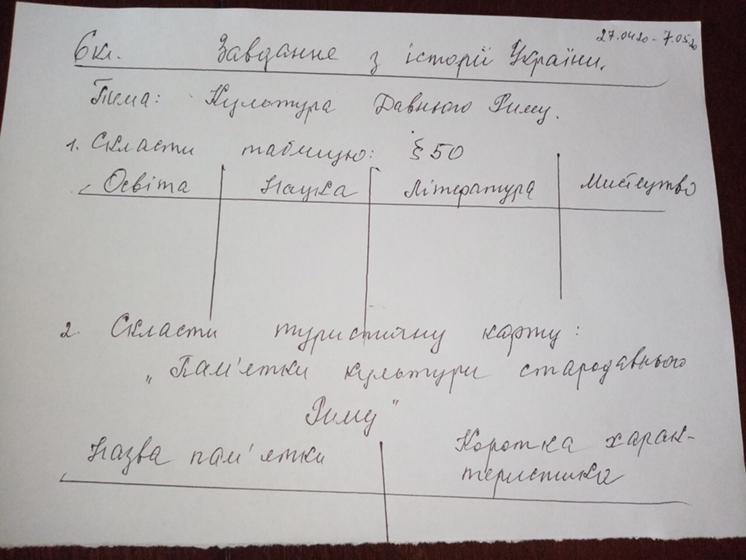 27.0420 - 7.05.20
6кл. Завдання з історії України.
Тема: Культура Давнього Риму.
1. Скласти таблицю: § 50
Освіта Наука Література Мистецтво
2. Скласти туристичну карту:
„Пам'ятки культури стародавнього
Риму"
Назва пам'ятки Коротка харак-
теристика